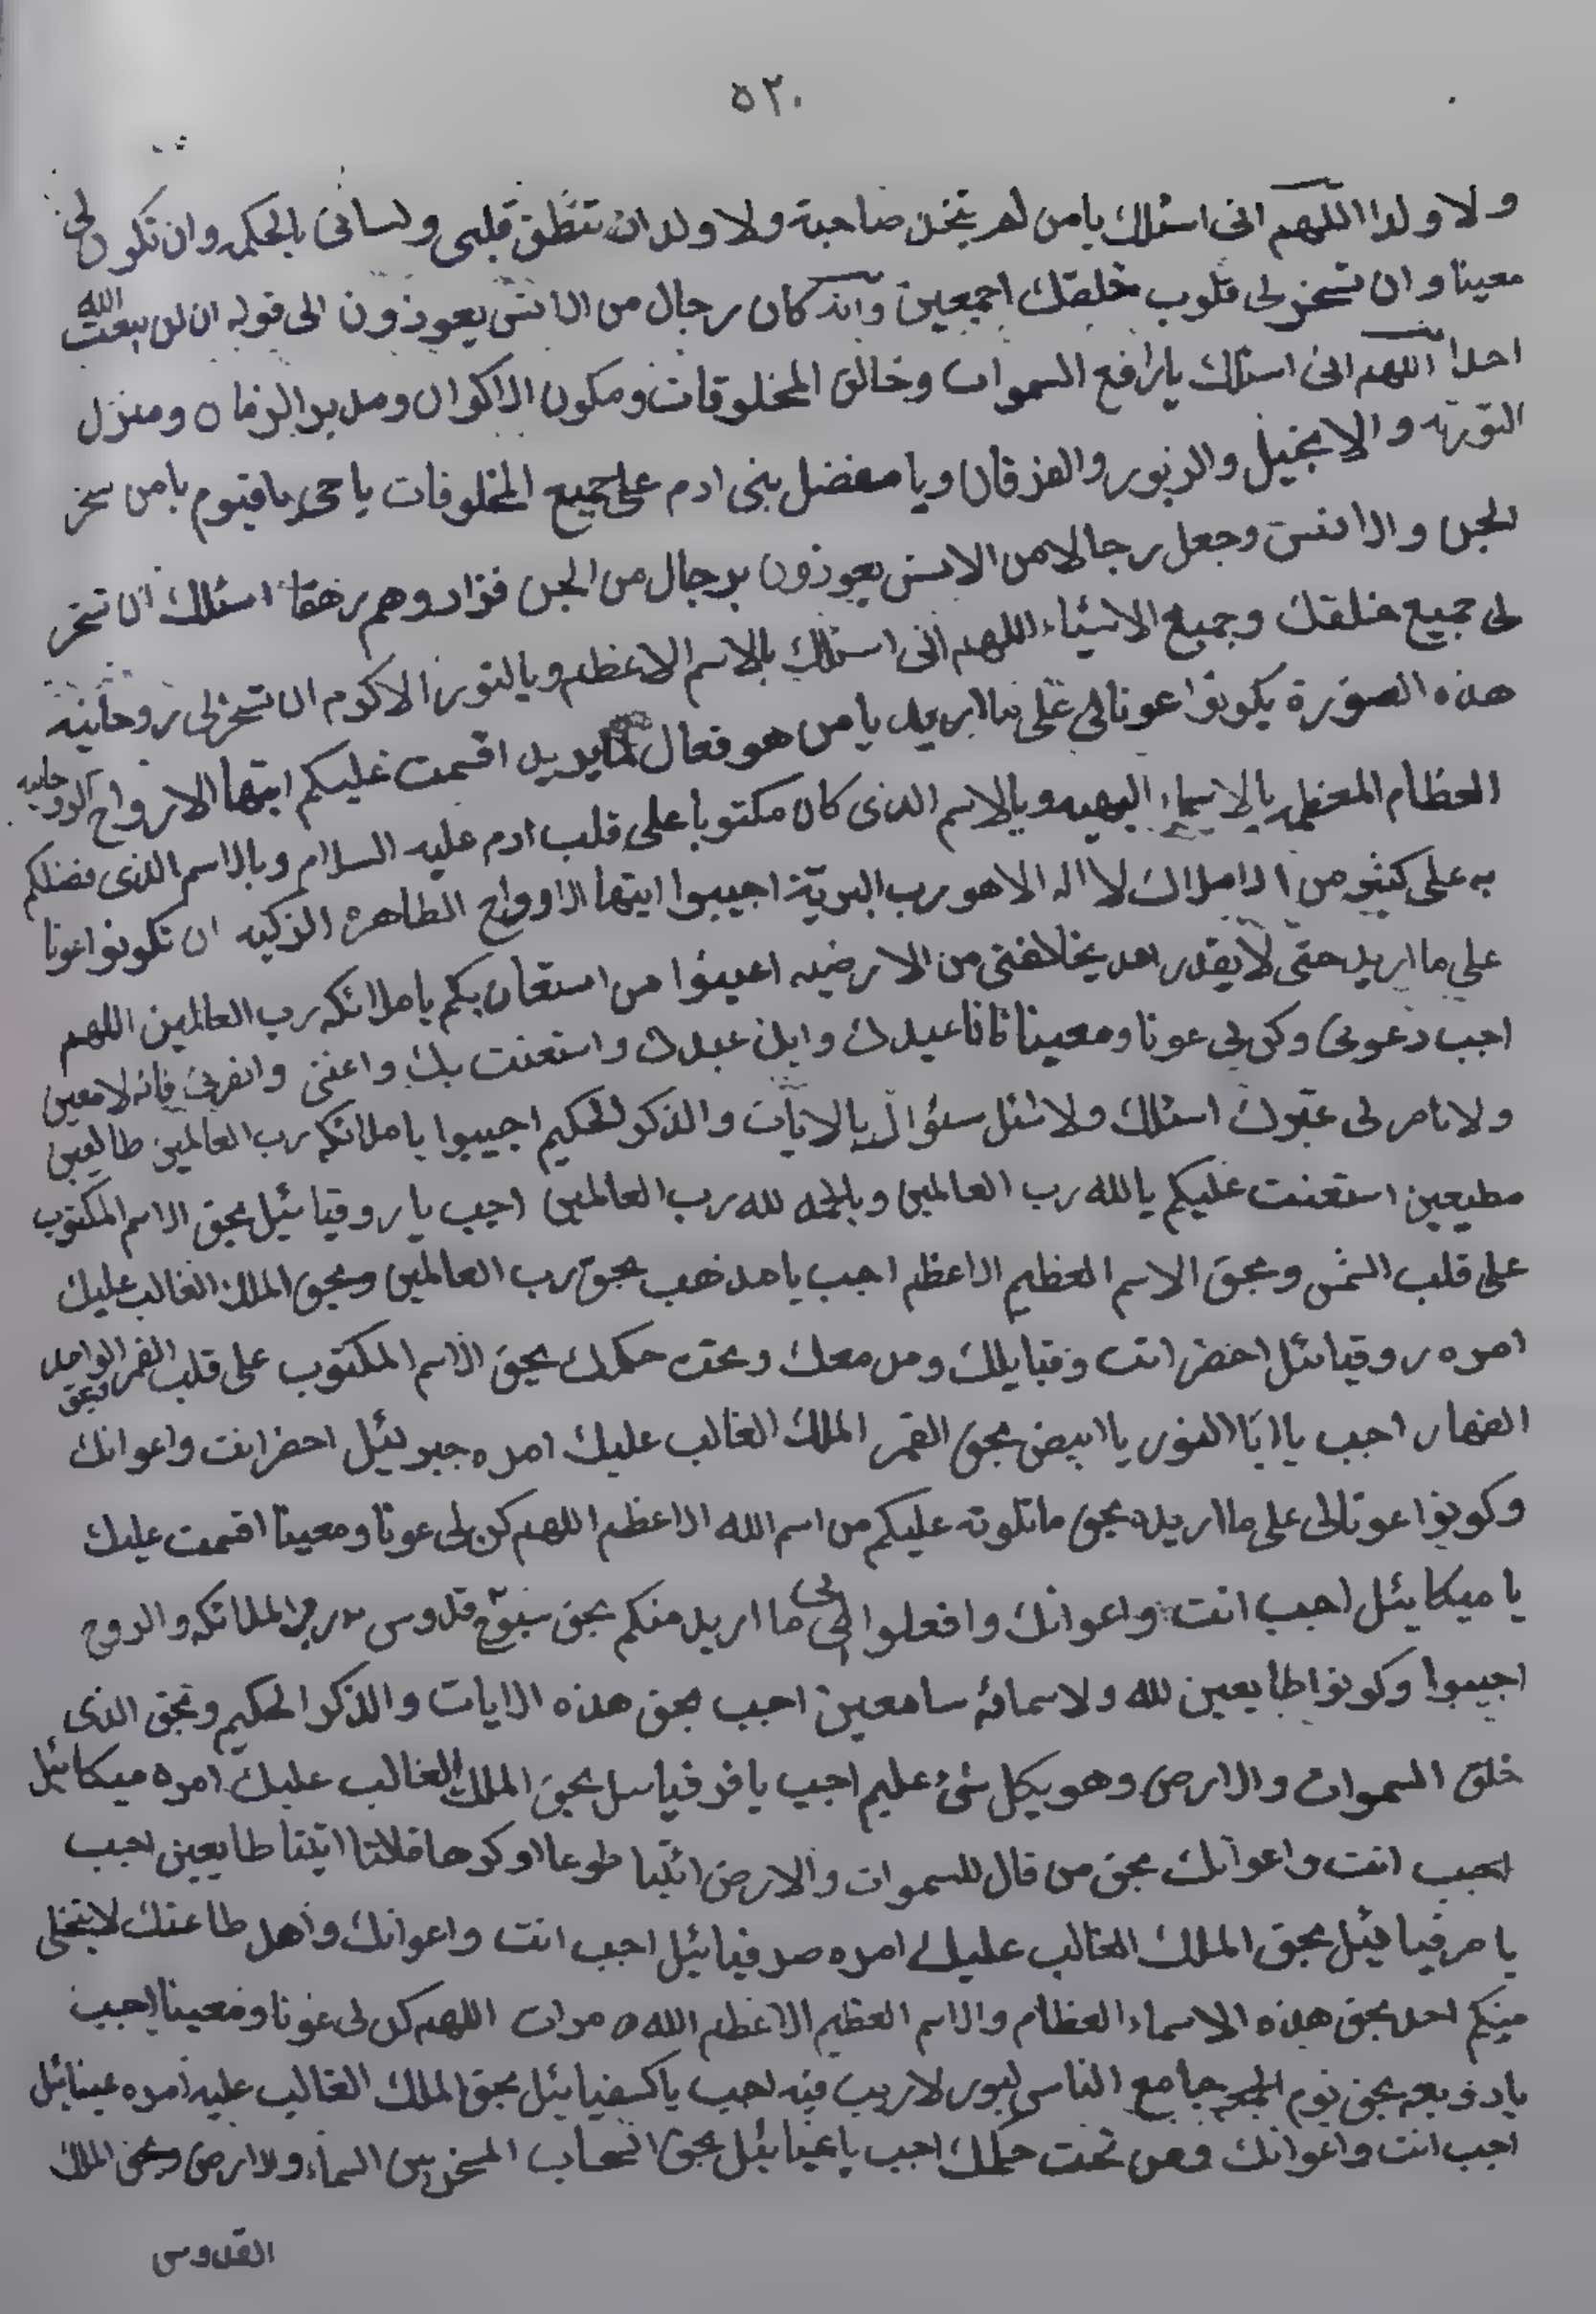 ٥٢٠
ولا ولدا اللهم انى اسئلك يا من لم يتخذ صاحبة ولا ولد ان تنطق قلبى ولسانى بالحكمه وان تكون لى
معينا وان تسخر لى قلوب خلقك اجمعين وانه كان رجال من الانس يعوذون الى قوله ان لن يبعث الله
احدا اللهم انى اسئلك يا رافع السموات وخالق المخلوقات ومكون الاكوان ومدبر الزمان ومنزل
التورته والانجيل والزبور والفرقان ويا مفضل بنى ادم على جميع المخلوقات يا حى يا قيوم يا من سخر
الجن والانس وجعل رجالا من الانس يعوذون برجال من الجن فزادوهم رهقا اسئلك ان تسخر
لى جميع خلقك وجميع الاشياء اللهم انى اسئلك بالاسم الاعظم وبالنور الاكرم ان تسخر لى روحانية
هذه الصورة يكونوا عونا لى على ما اريد يا من هو فعال لما يريد اقسمت عليكم ايتها الارواح الروحانيه
العظام المعظمه بالاسماء البهيه وبالاسم الذى كان مكتوبا على قلب ادم عليه السلام وبالاسم الذى فضلكم
به على كثير من الاملاك لا اله الا هو رب البرية اجيبوا ايتها الاوواح الطاهرة الزكيه ان تكونوا عونا
على ما اريد حتى لا يقدر احد يخالفنى من الارضيه اعينوا من استعان بكم يا ملائكه رب العالمين اللهم
اجب دعوتى وكن لى عونا ومعينا فانا عبدك وابن عبدك واستعنت بك واعنى وانصرنى فانه لا معين
ولا ناصر لى غيرك اسئلك ولا سئل سئوال بالايات والذكر الحكيم اجيبوا يا ملائكه رب العالمين طايعين
مطيعين استعنت عليكم بالله رب العالمين وبالحمد لله رب العالمين اجب يا روقيائيل بحق الاسم المكتوب
على قلب الشمس وبحق الاسم العظيم الاعظم اجب يا مذهب بحق رب العالمين وبحق الملك الغالب عليك
امره روقيائيل احضر انت وقبايلك ومن معك وتحت حكمك بحق الاسم المكتوب على قلب القمر وبحق الواحد
القهار اجب يا ابا النور يا ابيض بحق القمر الملك الغالب عليك امره جبرئيل احضر انت واعوانك
وكونوا عونا لى على ما اريده بحق ما تلوته عليكم من اسم الله الاعظم اللهم كن لى عونا ومعينا اقسمت عليك
يا ميكائيل اجب انت واعوانك وافعلوا لى ما اريد منكم بحق سبوح قدوس رب الملائكه والروح
اجيبوا وكونوا طايعين لله ولاسمائه سامعين اجب بحق هذه الايات والذكر الحكيم وبحق الذى
خلق السموات والارض وهو بكل شئ عليم اجب يا بحق الملك الغالب عليك امره ميكائيل
اجب انت واعوانك بحق من قال للسموات والارض ائتيا طوعا او كرها قالتا اتينا طايعين اجب
يا صرفيائيل بحق الملك الغالب عليك امره صرفيائيل اجب انت واعوانك واهل طاعتك لا يتخلى
منكم احد بحق هذه الاسماء العظام والاسم العظيم الاعظم الله ٥ مرات اللهم كن لى عونا ومعينا اجب
يا زوبعه بحق يوم الجمعه جامع الناس ليوم لا ريب فيه اجب يا كسفيائيل بحق الملك الغالب عليه امره عينائيل
اجب انت واعوانك ومن تحت حكمك اجب يا عينائيل بحق السحاب المسخر بين السماء والارض وبحق الملك
القدوس